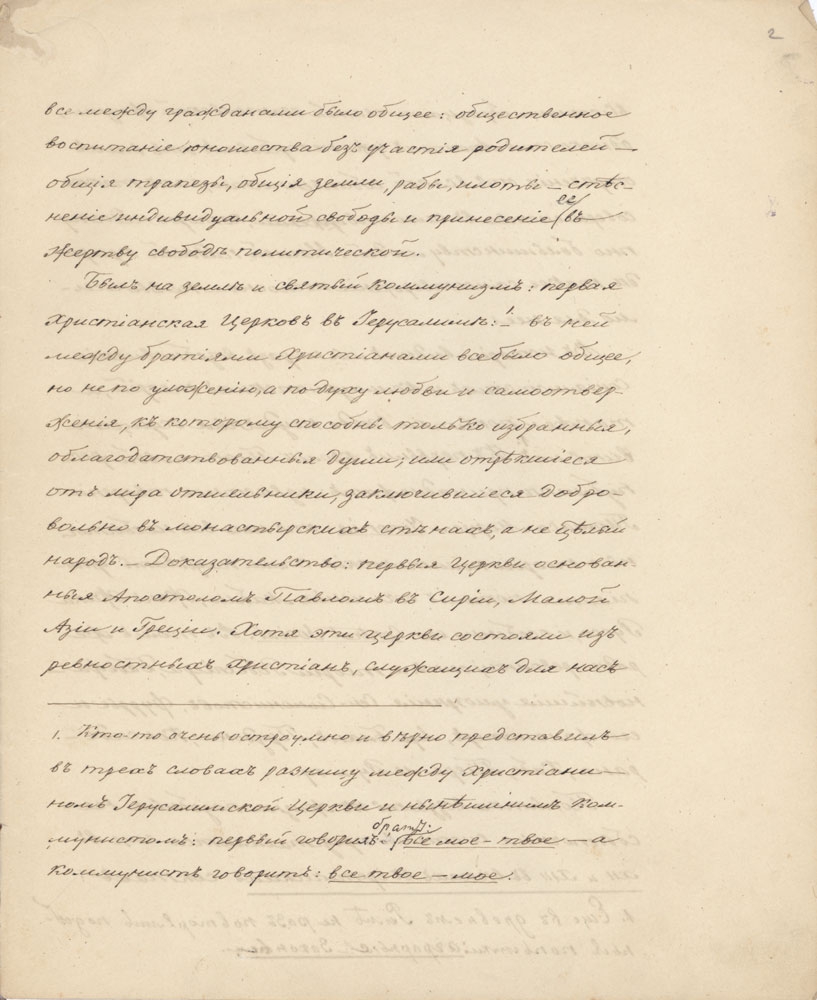 2
все между гражданами было общее: общественное
воспитаніе юношества безъ участія родителей —
общія трапезы, общія земли, рабы, илоты — стѣс-
неніе индивидуальной свободы и принесеніе ее въ
жертву свободѣ политической.
Былъ на землѣ и святый коммунизмъ: первая
Христіанская Церковь въ Іерусалимѣ: 1 въ ней
между братіями Христіанами все было общее,
но не по уложенію, а по духу любви и самоотвер-
женія, къ которому способны только избранныя,
облагодатствованныя души; или отрѣкшіеся
отъ міра отшельники, заключившіеся добро-
вольно въ монастырскихъ стѣнахъ, а не цѣлый
народъ. — Доказательство: первыя Церкви основан
ныя Апостоломъ Павломъ въ Сиріи, Малой
Азіи и Греціи. Хотя эти церкви состояли изъ
ревностныхъ Христіанъ, служащихъ для насъ
1. Кто то очень остроумно и вѣрно представилъ
въ трехъ словахъ разницу между Христіани-
номъ Іерусалимской Церкви и нынѣшнимъ Ком-
мунистомъ: первый говорилъ братъ: все мое - твое — а
коммунистъ говоритъ: все твое — мое.